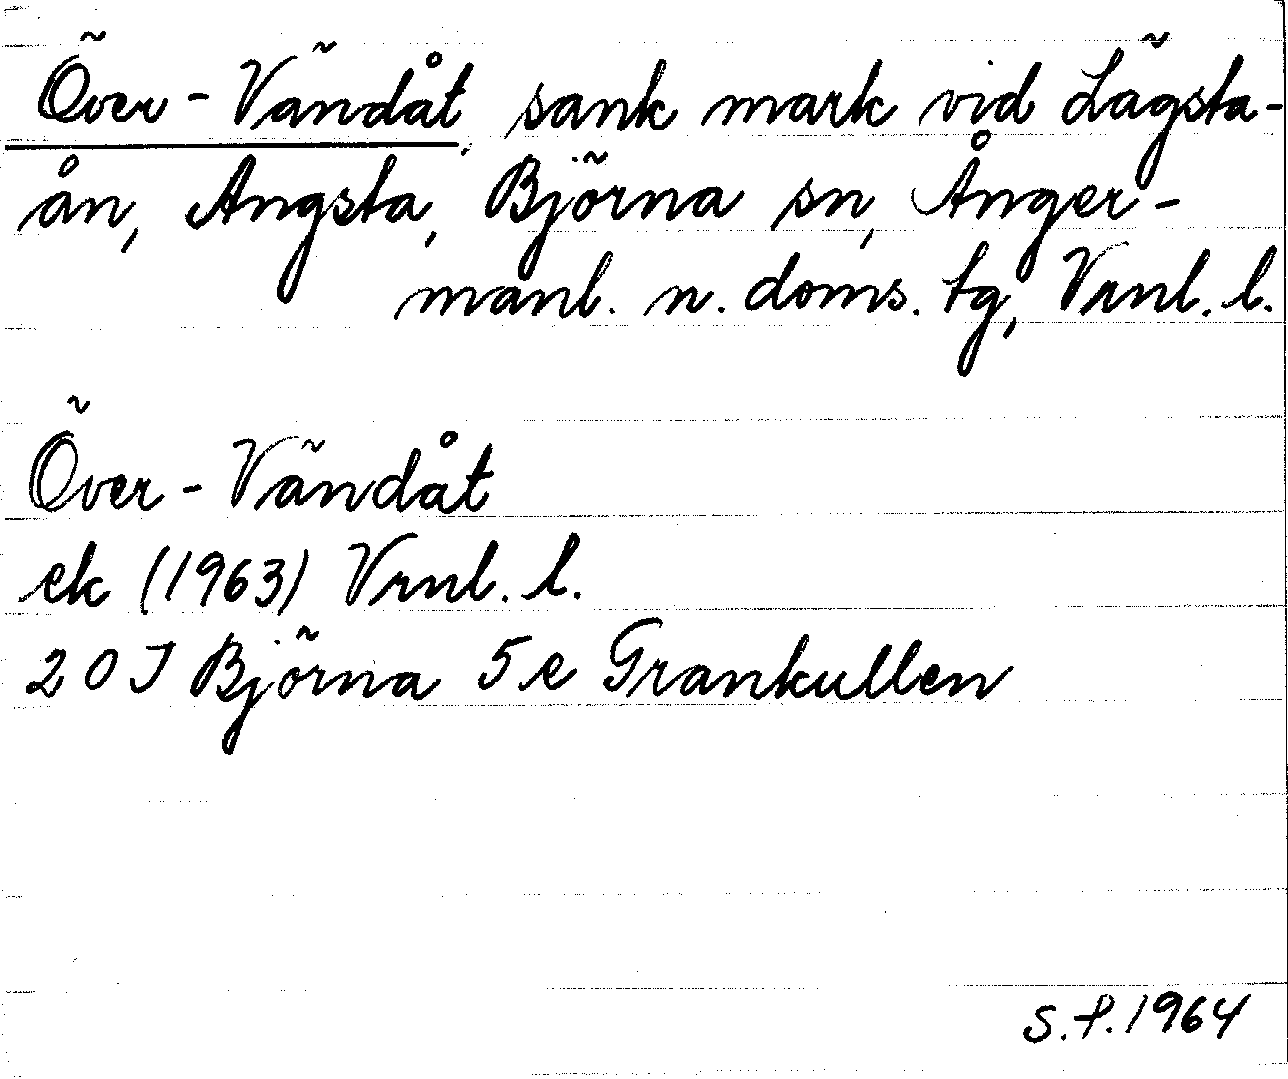 Över-Vändåt, sank mark vid Lägsta-
ån, Angsta, Björna sn, Ånger-
manl. n. doms. tg, Vrnl. l.
Över-Vändåt
ek (1963) Vrnl. l.
20 J Björna 5 e Grankullen
S.P. 1964